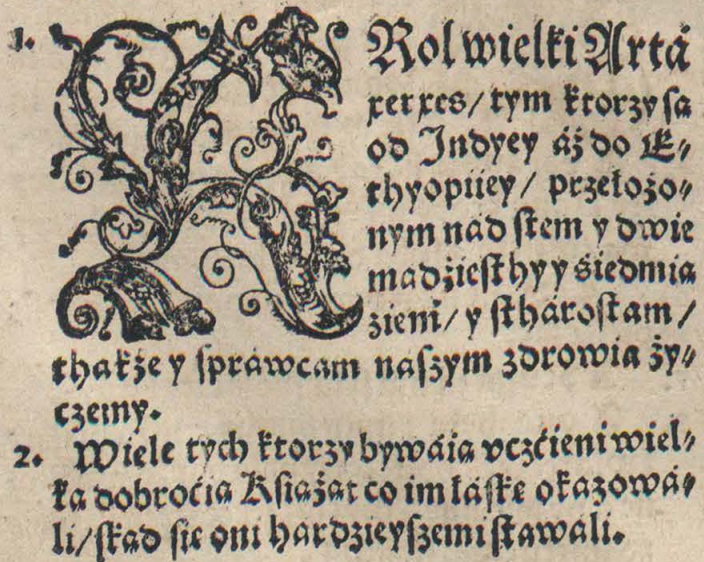 1. KRol wielki Artá
xerxes/ tym ktorzy są
od Indyey áż do E⸗
thyopiiey/ przełożo⸗
nym nád stem y dwie
mádziesthy y siedmią
zieni/ y sthárostam/
thákże y spráwcam nászym zdrowia ży⸗
czemy.
2. Wiele tych ktorzy bywáią vczćieni wiel⸗
ką dobroćią Kśiążąt co im łáskę okázowá⸗
li/ skąd się oni hárdzieyszemi stawáli.